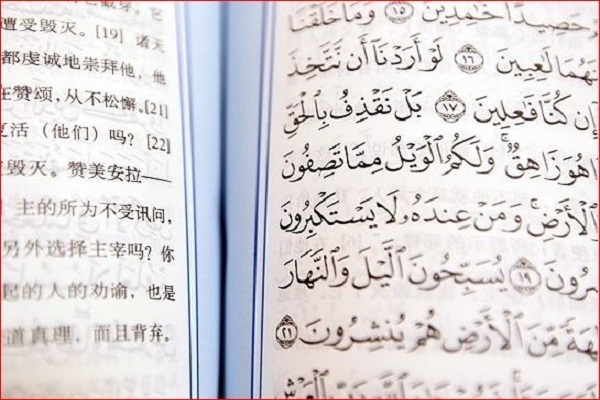 遭受毁灭。[19] 诸天
都虔诚地崇拜他，他
在赞颂，从不松懈。[21]
复活（他们）吗？[22]
毁灭。赞美安拉——
主的所为不受讯问，
另外选择主宰吗？你
起的人的劝谕，也是
道真理，而且背弃。
حَصِيدًا خَٰمِدِينَ ١٥ وَمَا خَلَقْنَا
لَٰعِبِينَ ١٦ لَوْ أَرَدْنَآ أَن نَّتَّخِذَ
إِن كُنَّا فَٰعِلِينَ ١٧ بَلْ نَقْذِفُ بِٱلْحَقِّ
هُوَ زَاهِقٌ ۚ وَلَكُمُ ٱلْوَيْلُ مِمَّا تَصِفُونَ
ٱلْأَرْضِ ۚ وَمَنْ عِندَهُۥ لَا يَسْتَكْبِرُونَ
١٩ يُسَبِّحُونَ ٱلَّيْلَ وَٱلنَّهَارَ
مِّنَ ٱلْأَرْضِ هُمْ يُنشِرُونَ ٢١